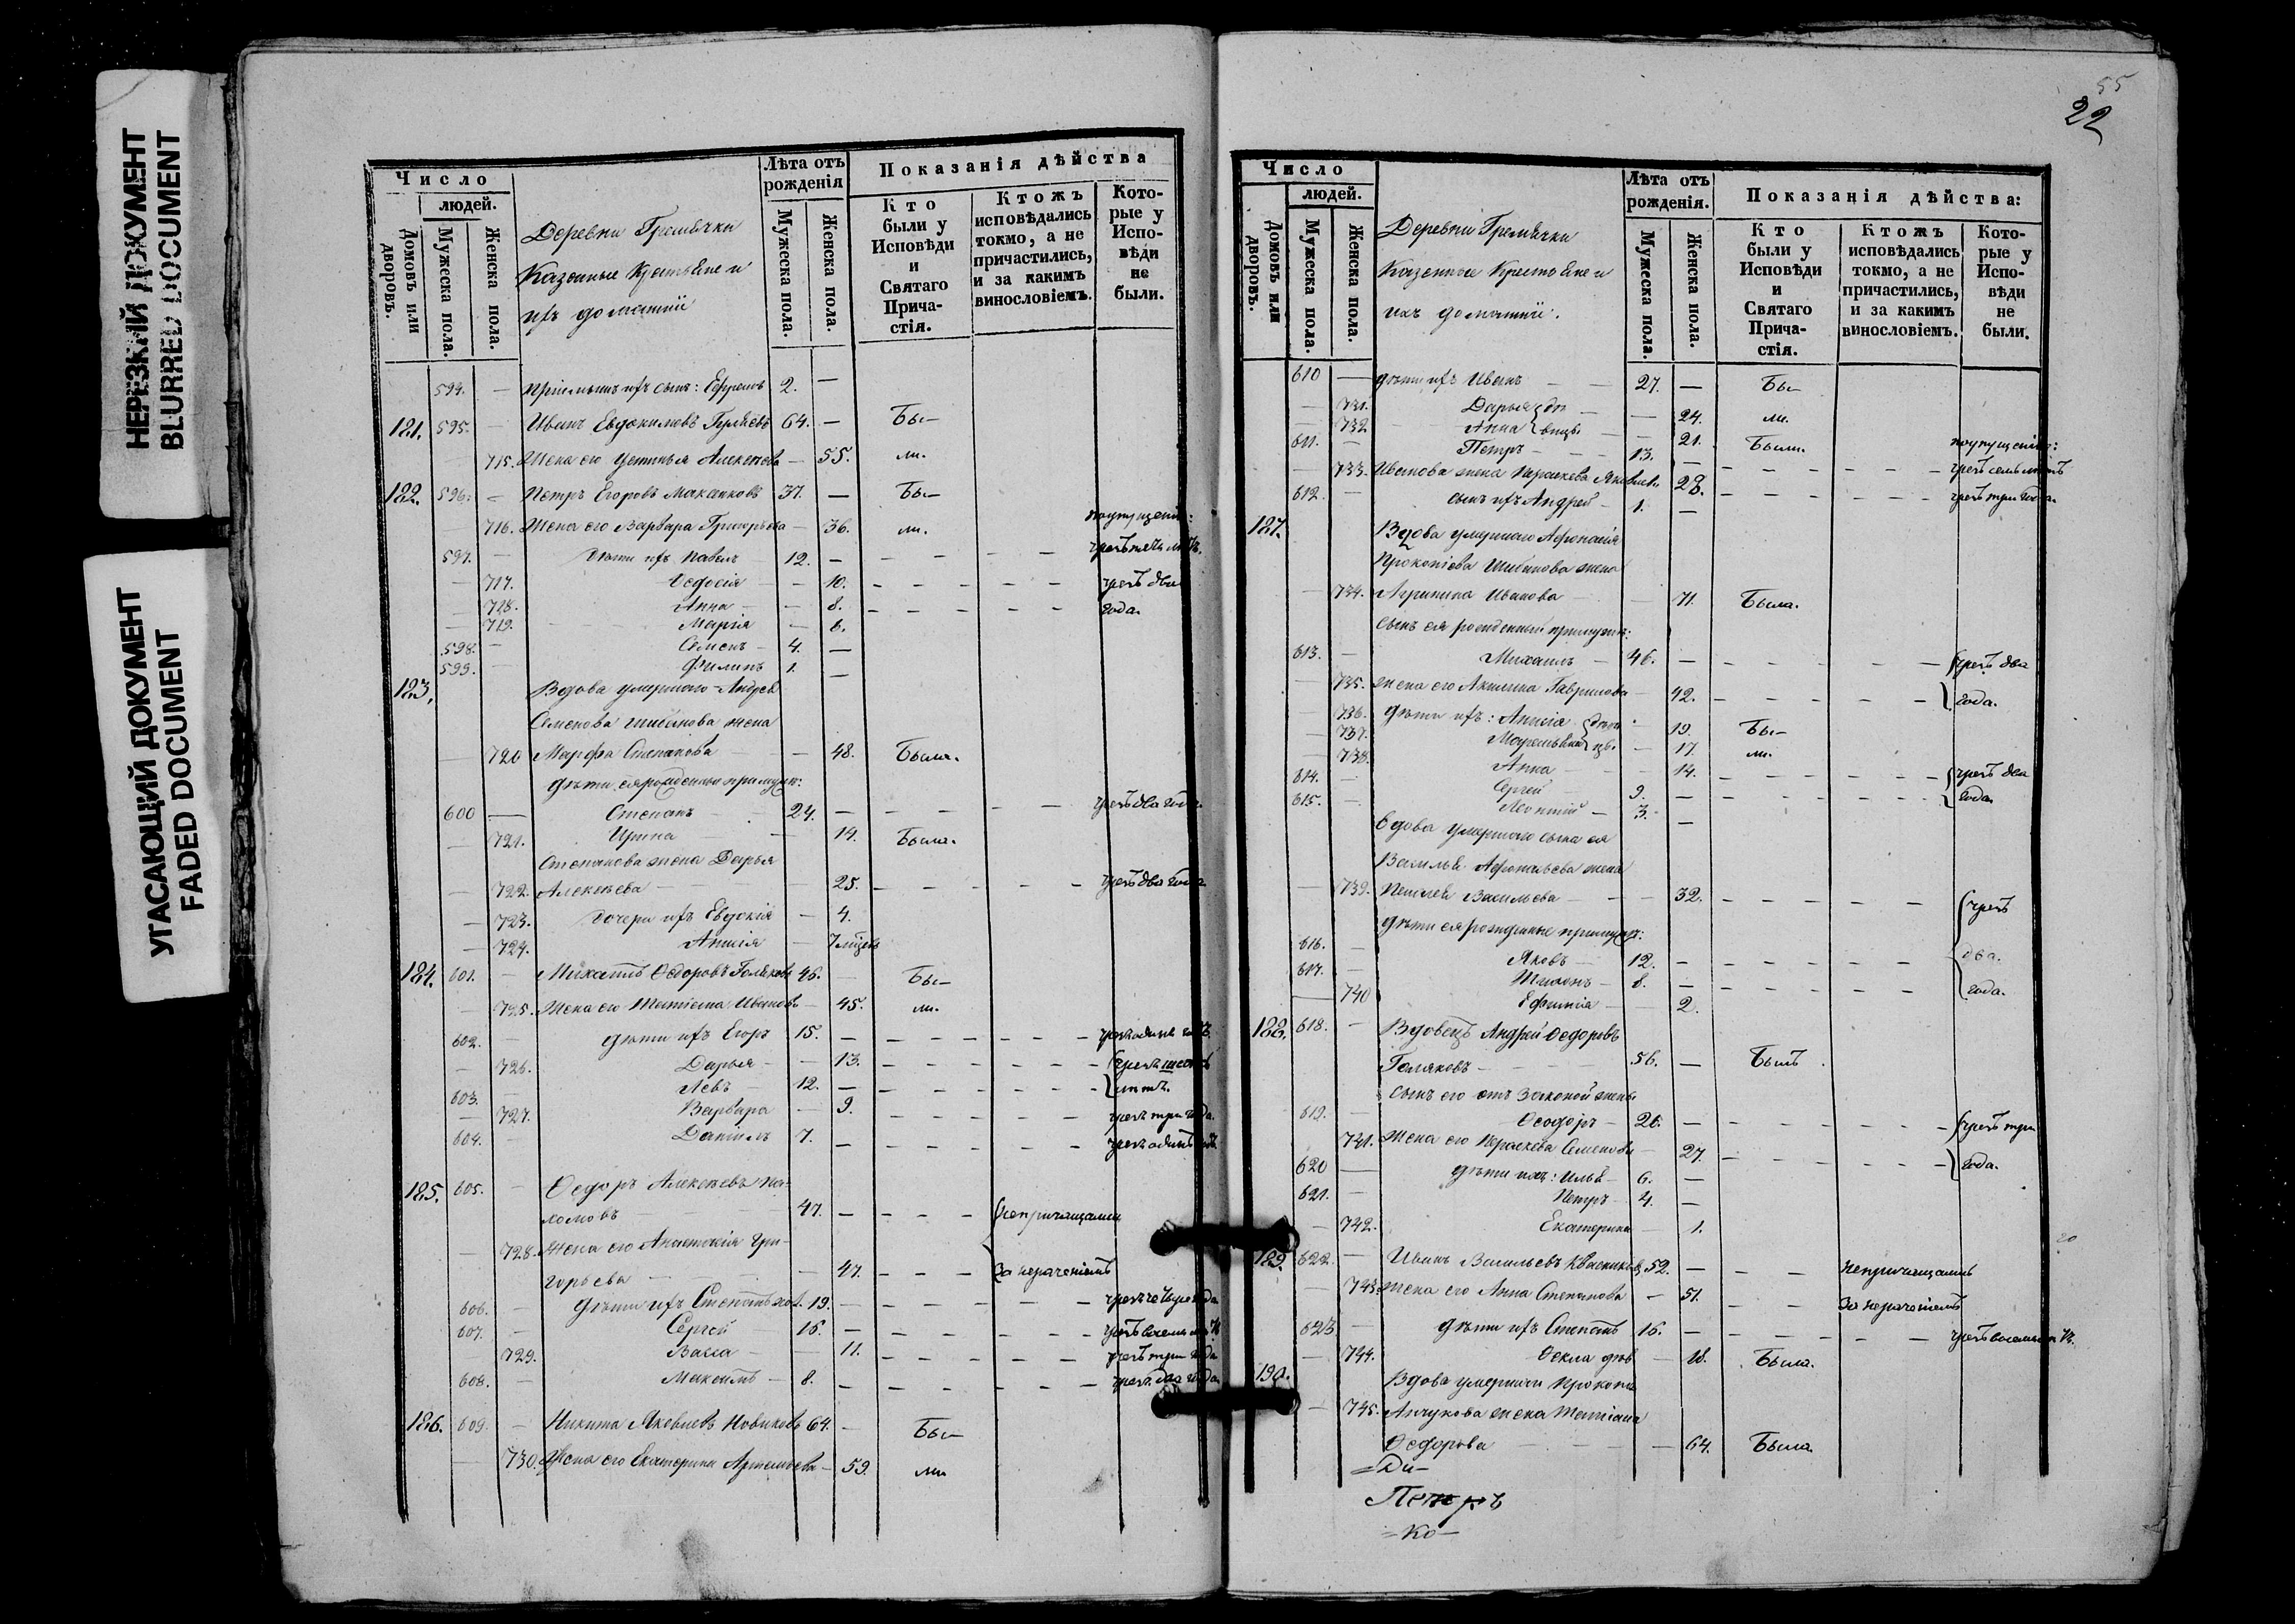 НЕРЕЗКИЙ ДОКУМЕНТ
BLURRED DOCUMENT
УГАСАЮЩИЙ ДОКУМЕНТ
FADED DOCUMENT
Число
людей.
Домовъ или дворовъ.
Мужеска пола.
Женска пола.
Деревни Гремячки
Казенные Крестьяне и
ихъ домашнiи
Лѣта отъ рожденія
Мужеска пола.
Женска пола.
Показанія дѣйства
Кто были у Исповѣди и Святаго Прича-стія.
Ктожъ исповѣдались токмо, а не причастились, и за какимъ винословіемъ.
Кото-рые у Испо-вѣди не были.
594. — сынъ: Ефремъ 2. —
181. 595. — Иванъ Евдокимовъ 64. — Бы-
715. Жена его Устинья Алексеева — 55. ли.
182. 596. — Петръ Егоровъ 37. — Бы-
716. Жена его Варвара Григорьева — 36. ли.
597. — Дѣти ихъ Павелъ 12. —
— 717. Ѳедосія — 10. — чрезъ два
— 718. Анна — 8. — года.
— 719. Марія — 6.
598. — Семенъ 4. —
599. — Филипъ 1. —
183. Вдова умершаго Андрея
Семенова Шибанова жена
— 720 Марфа Степанова — 48. Была.
дѣти ея рожденныи
600 — Степанъ 24. — чрезъ два года
— 721. Ирина — 14. Была.
Степанова жена Дарья
— 722. Алексеева — 25. — чрезъ два года
— 723. дочери ихъ Евдокія — 4.
— 724. Анисія — 7
184. 601. — Ѳедоровъ Голяковъ 46. Бы-
— 725. Жена его Татіана Иванова — 45. ли.
602. — дѣти ихъ Егоръ 15. — чрезъ одинъ годъ
— 726. Дарья — 13. — чрезъ шесть
603. — Левъ 12. — лѣтъ.
— 727. Варвара — 9. — чрезъ три года
604. — Даніилъ 7. — чрезъ одинъ годъ
185. 605. — Ѳедоръ Алексеевъ Па-
хомовъ 47. — непричащались
— 728. Жена его Анастасія Гри-
горьева — 47. — за нераченіемъ
606. — дѣти ихъ Степанъ хол. 19. — чрезъ четыре года
607. — Сергей 16. — чрезъ восемь лѣтъ
729. Васса — 11. — чрезъ три года
608. — Максимъ 8. — чрезъ два года
186. 609. — Никита Яковлевъ Новиковъ 64. — Бы-
— 730. Жена его Екатерина Артемьева — 59. ли
55
22
Число
людей.
Домовъ или дворовъ.
Мужеска пола.
Женска пола.
Деревни Гремячки
Казенные Крестьяне и
ихъ домашнiи.
Лѣта отъ рожденія.
Мужеска пола.
Женска пола.
Показанія дѣйства:
Кто были у Исповѣди и Святаго Прича-стія.
Ктожъ исповѣдались токмо, а не причастились, и за какимъ винословіемъ.
Кото-рые у Испо-вѣди не были.
610 — дѣти ихъ Иванъ 27. — Бы-
— 731. Дарья — 24. ли.
— 732 Анна — 21. Были.
611. — Петръ 13. — чрезъ семь лѣтъ
— 733. Иванова жена Параскева — 28. — чрезъ три года.
612. — сынъ ихъ Андрей 1. —
187. Вдова умершаго Афонасія
Прокопіева Шибанова жена
— 734. Агрипина Иванова — 71. Была.
сынъ ея рожденный
613. — Михаилъ 46. — чрезъ два
— 735. жена его Акилина Гаврилова — 42. — года.
— 736. дѣти ихъ: Анисія — 19. Бы-
— 737. — 17. ли.
— 738. Анна — 14. — чрезъ два
614. — Сергей 9. — года
615. — Леонтій 3. —
вдова умершаго сына ея
Василья Афонасьева жена
— 739. Васильева — 32. — чрезъ
дѣти ея рожденные
616. — Яковъ 12. — два.
617. — 8. — года.
— 740 Ефимія — 2.
188. 618. — Вдовецъ Андрей Ѳедоровъ
Голяковъ 56. — Былъ
сынъ его отъ законой жены
619. — Ѳеодоръ 26. — чрезъ три
741. Жена его Параскева Семенова — 27. — года.
620 — дѣти ихъ: Илья 6. —
621. — Петръ 4. —
— 742. Екатерина — 1.
189. 622. — Иванъ Васильевъ 52. — непричащались
— 743. Жена его Анна Степанова — 51. за нераченіемъ
623 — дѣти ихъ Степанъ 16. — чрезъ восемь лѣтъ.
— 744. Ѳекла дѣв. — 18. Была.
190. Вдова умершаго Прокопія
— 745. жена Татіана
Ѳедорова — 64. Была
Ди-
Петръ
Ко-